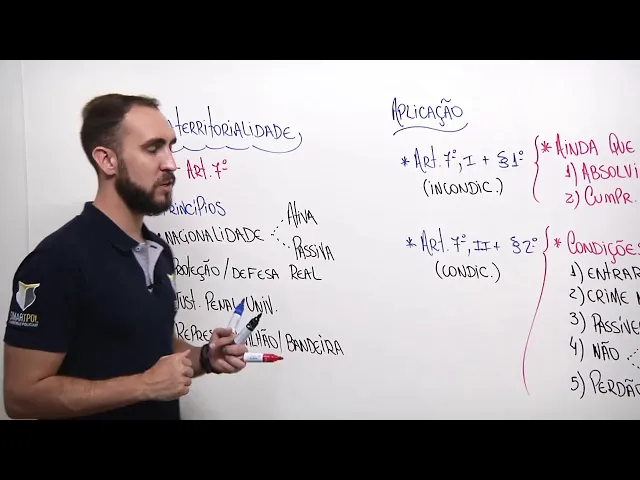 TERRITORIALIDADE
ART. 7º
PRINCÍPIOS
NACIONALIDADE
ATIVA
PASSIVA
PROTEÇÃO/DEFESA REAL
JUST. PENAL UNIV.
REPRES. /BANDEIRA
APLICAÇÃO
* ART. 7º, I + §1º
(INCONDIC.)
* AINDA QUE
1) ABSOLVI
2) CUMPR.
* ART. 7º, II + §2º
(CONDIC.)
* CONDIÇÕES
1) ENTRAR
2) CRIME
3) PASSÍVE
4) NÃO
5) PERDÃO
SMARTPOL